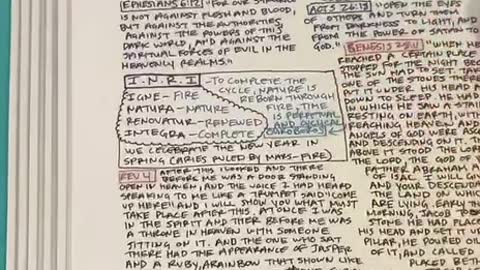 EPHESIANS 6:12 "FOR OUR STRUGGLE
IS NOT AGAINST FLESH AND BLOOD,
BUT AGAINST THE AUTHORITIES
AGAINST THE POWERS OF THIS
DARK WORLD, AND AGAINST THE
SPIRITUAL FORCES OF EVIL IN THE
HEAVENLY REALMS."
I.N.R.I -TO COMPLETE THE
CYCLE, NATURE IS
REBORN THROUGH
IGNE-FIRE
FIRE, TIME
NATURA-NATURE
IS PERPETUAL
RENOVATUR-RENEWED
AND CYCLICAL
INTEGRA-COMPLETE
OUROBOROS
WE CELEBRATE THE NEW YEAR IN
SPRING (ARIES RULED BY MARS-FIRE)
REV 4 AFTER THIS I LOOKED AND THERE
BEFORE ME WAS A DOOR STANDING
OPEN IN HEAVEN, AND THE VOICE I HAD HEARD
SPEAKING TO ME LIKE A TRUMPET SAID "COME
UP HERE" AND I WILL SHOW YOU WHAT MUST
TAKE PLACE AFTER THIS. AT ONCE I WAS
IN THE SPIRIT AND THERE BEFORE ME WAS
A THRONE IN HEAVEN WITH SOMEONE
SITTING ON IT. AND THE ONE WHO SAT
THERE HAD THE APPEARANCE OF JASPER
AND A RUBY, A RAINBOW THAT SHONE LIKE
ACTS 26:18 "OPEN THE EYES
OF OTHERS AND TURN THEM
FROM DARKNESS TO LIGHT, AND
FROM THE POWER OF SATAN TO
GOD."
GENESIS "WHEN HE
REACHED A CERTAIN PLACE
STOPPED FOR THE NIGHT BECAUSE
THE SUN HAD SET. TAKING
ONE OF THE STONES THERE
PUT IT UNDER HIS HEAD AND
DOWN TO SLEEP HE HAD A
IN WHICH HE SAW A STAIR
RESTING ON EARTH, WITH
REACHING HEAVEN AND
ANGELS OF GOD WERE ASC
AND DESCENDING
ABOVE IT STOOD THE LORD
THE LORD, THE GOD OF
FATHER ABRAHAM A
OF ISAC. I WILL G
AND YOUR DESCENDA
THE LAND ON WHICH
ARE LYING. EARLY THE
MORNING, JACOB TOOK
STONE HE HAD PLACED
HIS HEAD AND SET IT UP
PILLAR, HE POURED OIL
OF IT, AND CALLED
PLACE BETH